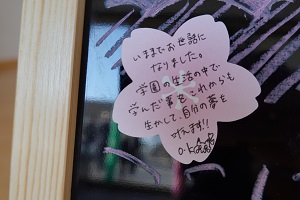 いままでお世話に
なりました。
学園の生活の中で
学んだ事をこれからも
生かして、自分の夢を
叶えます!!
O.K